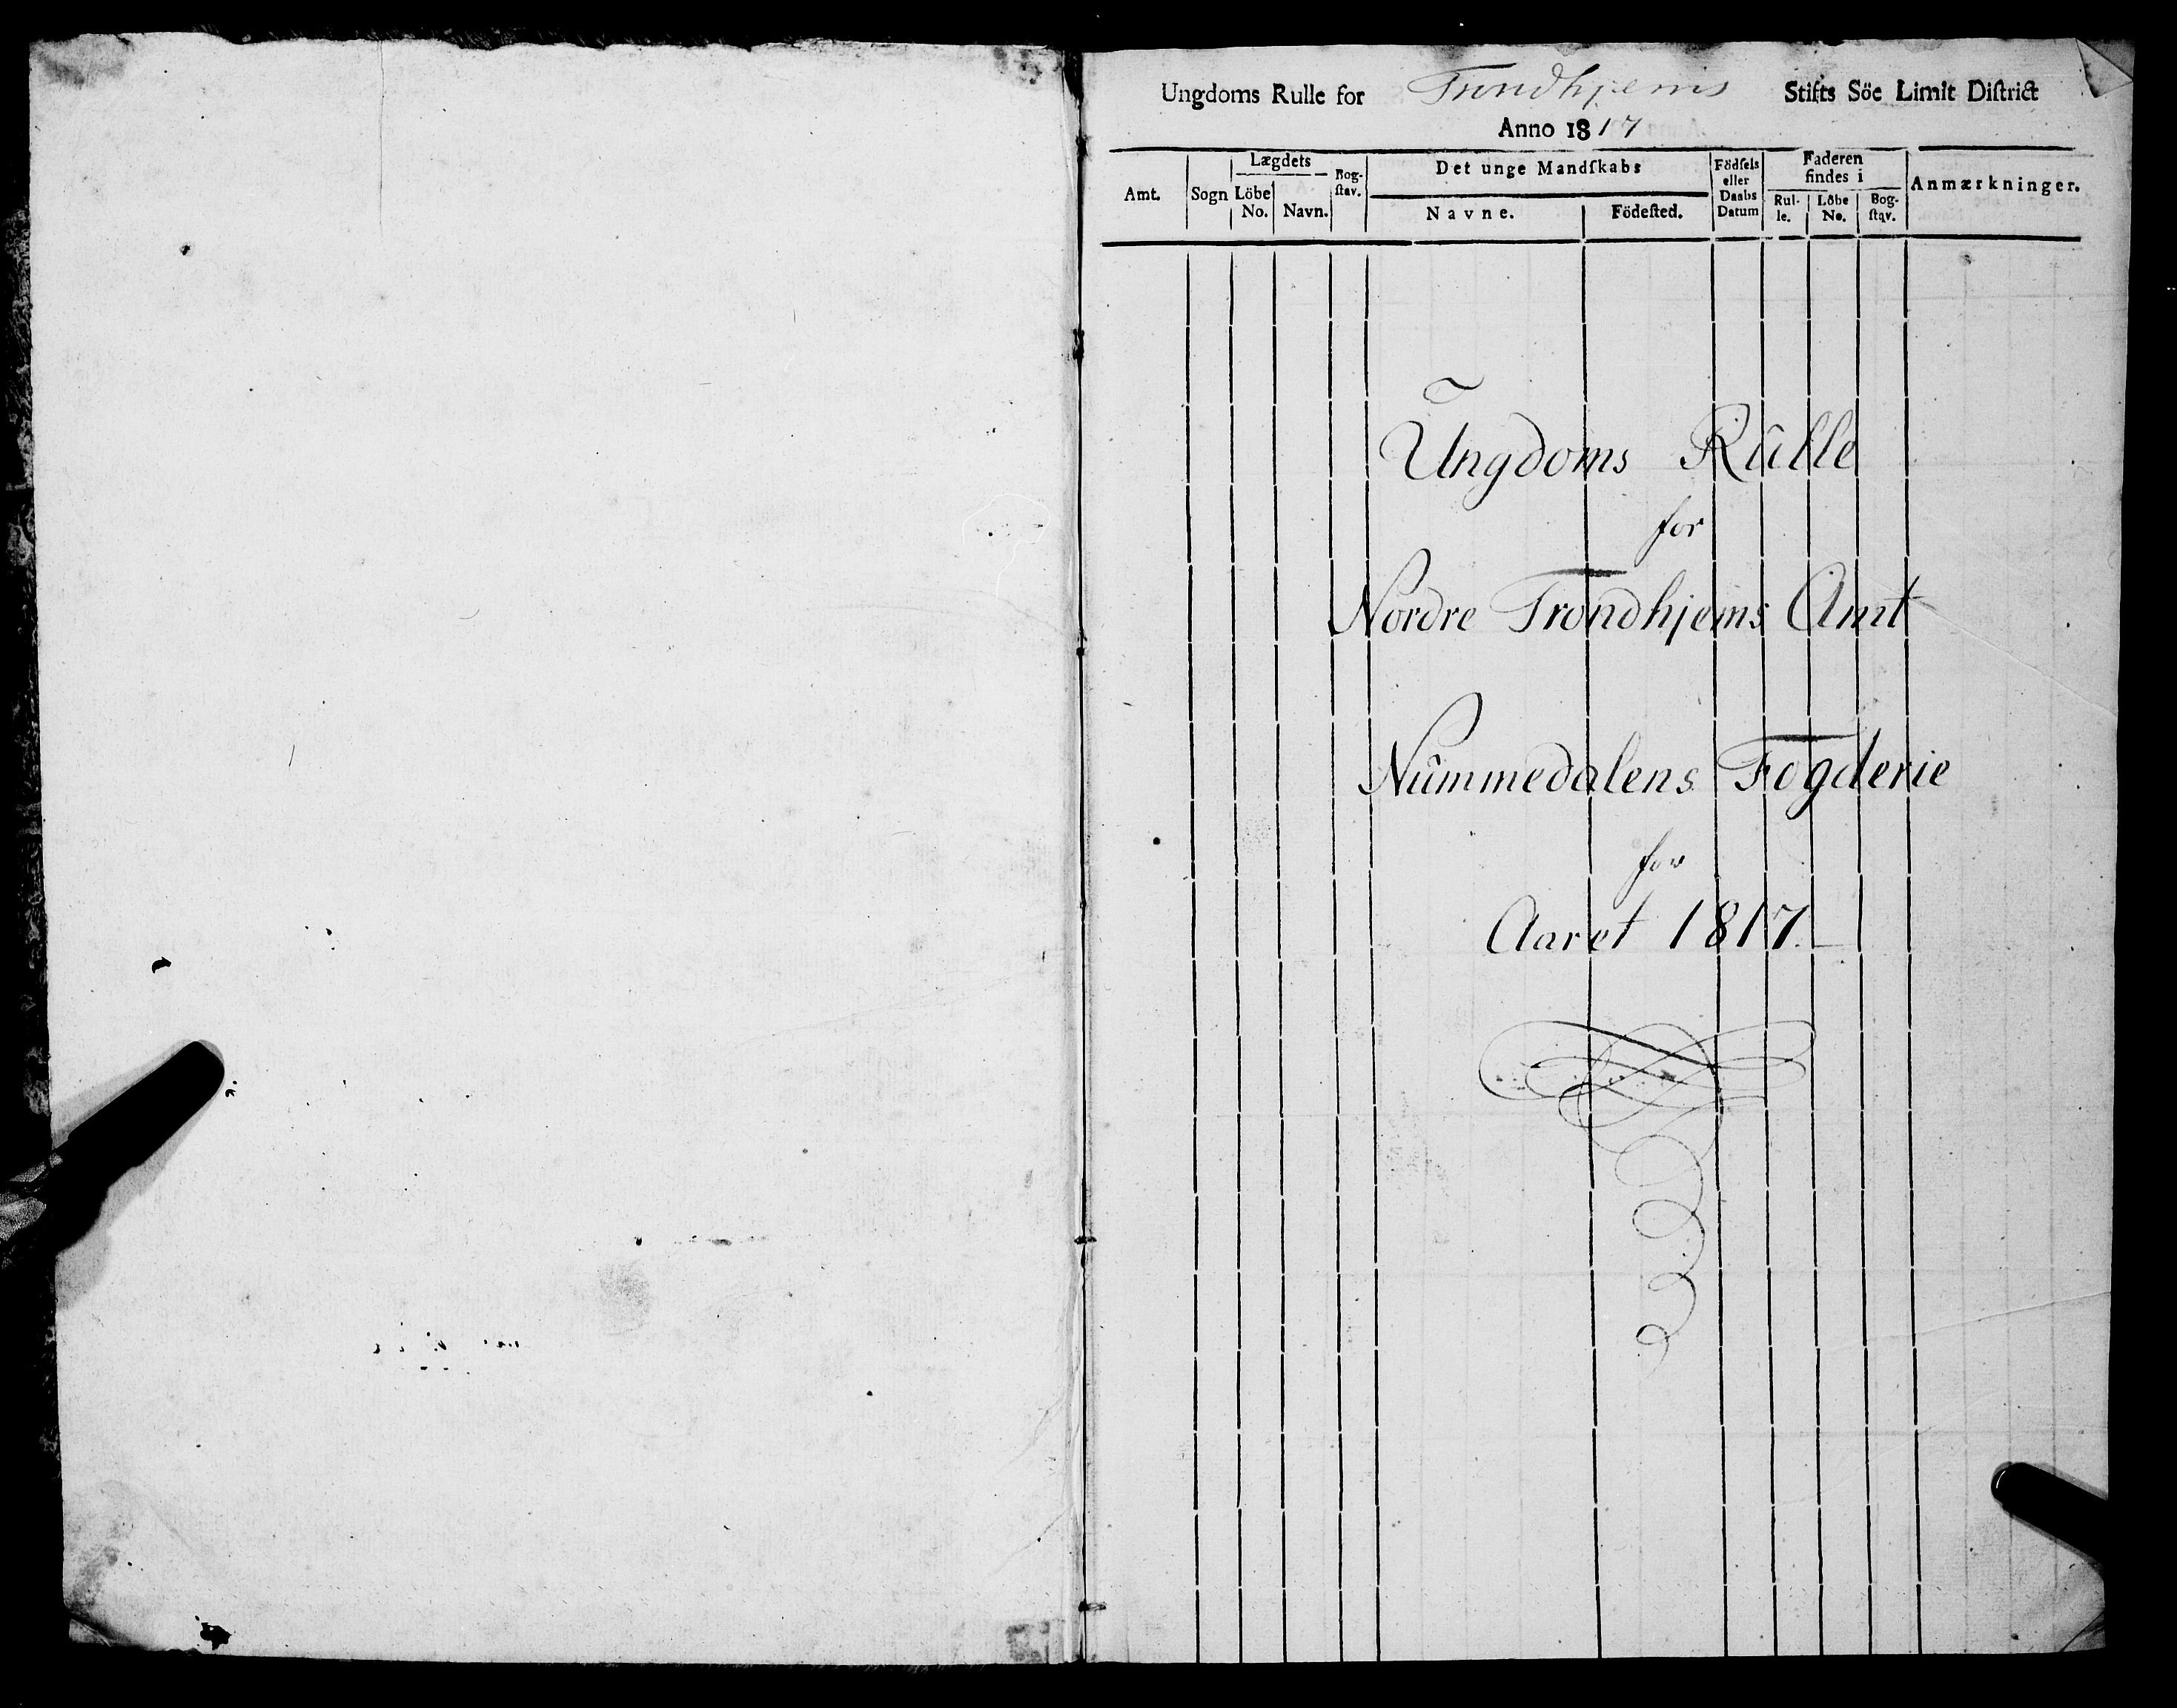 Ungdoms Rulle for Trondhjems Stifts Söe Limit Diſtrict
Anno 1817
Amt.
Sogn
Lægdets
Löbe No.
Navn.
Bog-ſtav.
Det unge Mandſkabs
Navne.
Födeſted.
Födſels eller Daabs Datum
Faderen findes i
Rul-le.
Löbe No.
Bog-ſtav.
Anmærkninger.
Ungdoms Rulle
for
Nordre Trondhjems Amt
Nummedalens Fogderie
for
Aaret 1817.